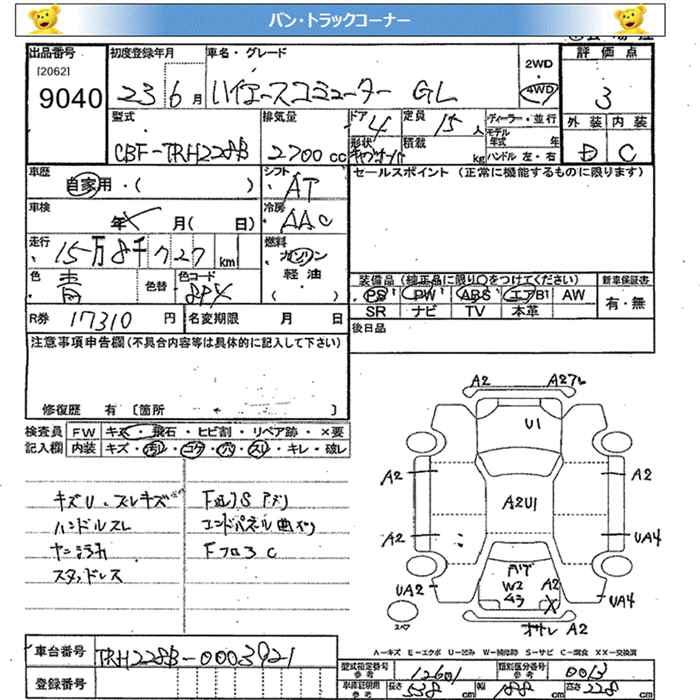 バン・トラックコーナー
出品番号 初度登録年月 車名・グレード 2WD 評価点
[2062]
9040 23 6月 ハイエースコミューター GL 4WD 3
型式 排気量 ドア 4 定員 15人 ディーラー・並行 外装 内装
CBF-TRH228B 2700cc 形状 積載 kg モデル年式 年 D C
ハンドル 左・右
車歴 自家用・( ) シフト AT セールスポイント (正常に機能するものに限ります)
車検 年 月( 日) 冷房 AAC
走行 15万8千727km 燃料 ガソリン
軽油
( )
色 青 色替 色コード 8PX 装備品(純正品に限り○をつけてください) 新車保証書
PS PW ABS エアB1 AW 有・無
SR ナビ TV 本革
R券 17310円 名変期限 月 日 後日品
注意事項申告欄(不具合内容等は具体的に記入して下さい)
修復歴 有 〔箇所 〕
検査員 FW キズ・飛石・ヒビ割・リペア跡・×要
記入欄 内装 キズ・汚レ・コゲ・穴・スレ・キレ・破レ
キズU.スレキズ
ハンドルスレ エンドパネル曲り
Fフロア C
スタッドレス
A2 A2
U1
A2 A2
A2U1
A2 UA4
W2 A2
UA2 X UA4
A2
A-キズ E-エクボ U-凹み W-補修跡 S-サビ C-腐食 XX-交換済
車台番号 TRH228B-0003921
登録番号
型式指定番号 参考 12601 類別区分番号 参考 0013
車庫証明用 参考 長さ 538cm 幅 188cm 高さ 228cm